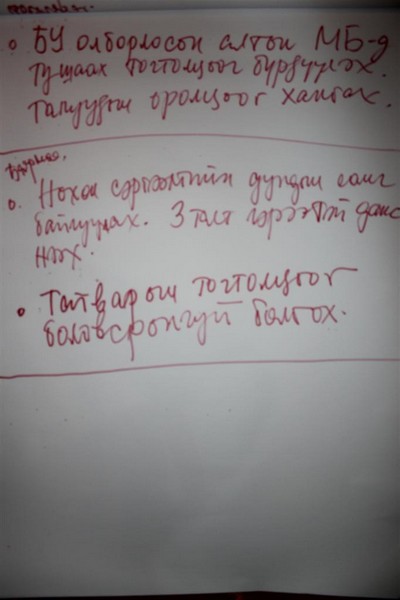 • БУ олборлосон алтын МБ-д
тушаах тогтолцоог бүрдүүлэх.
талуудын оролцоог хангах.
о. Нөхөн сэргээлтийн дундын санг
байгуулах. 3 талт гэрээтэй данс
нээх.
• Татварын тогтолцоог
боловсронгуй болгох.